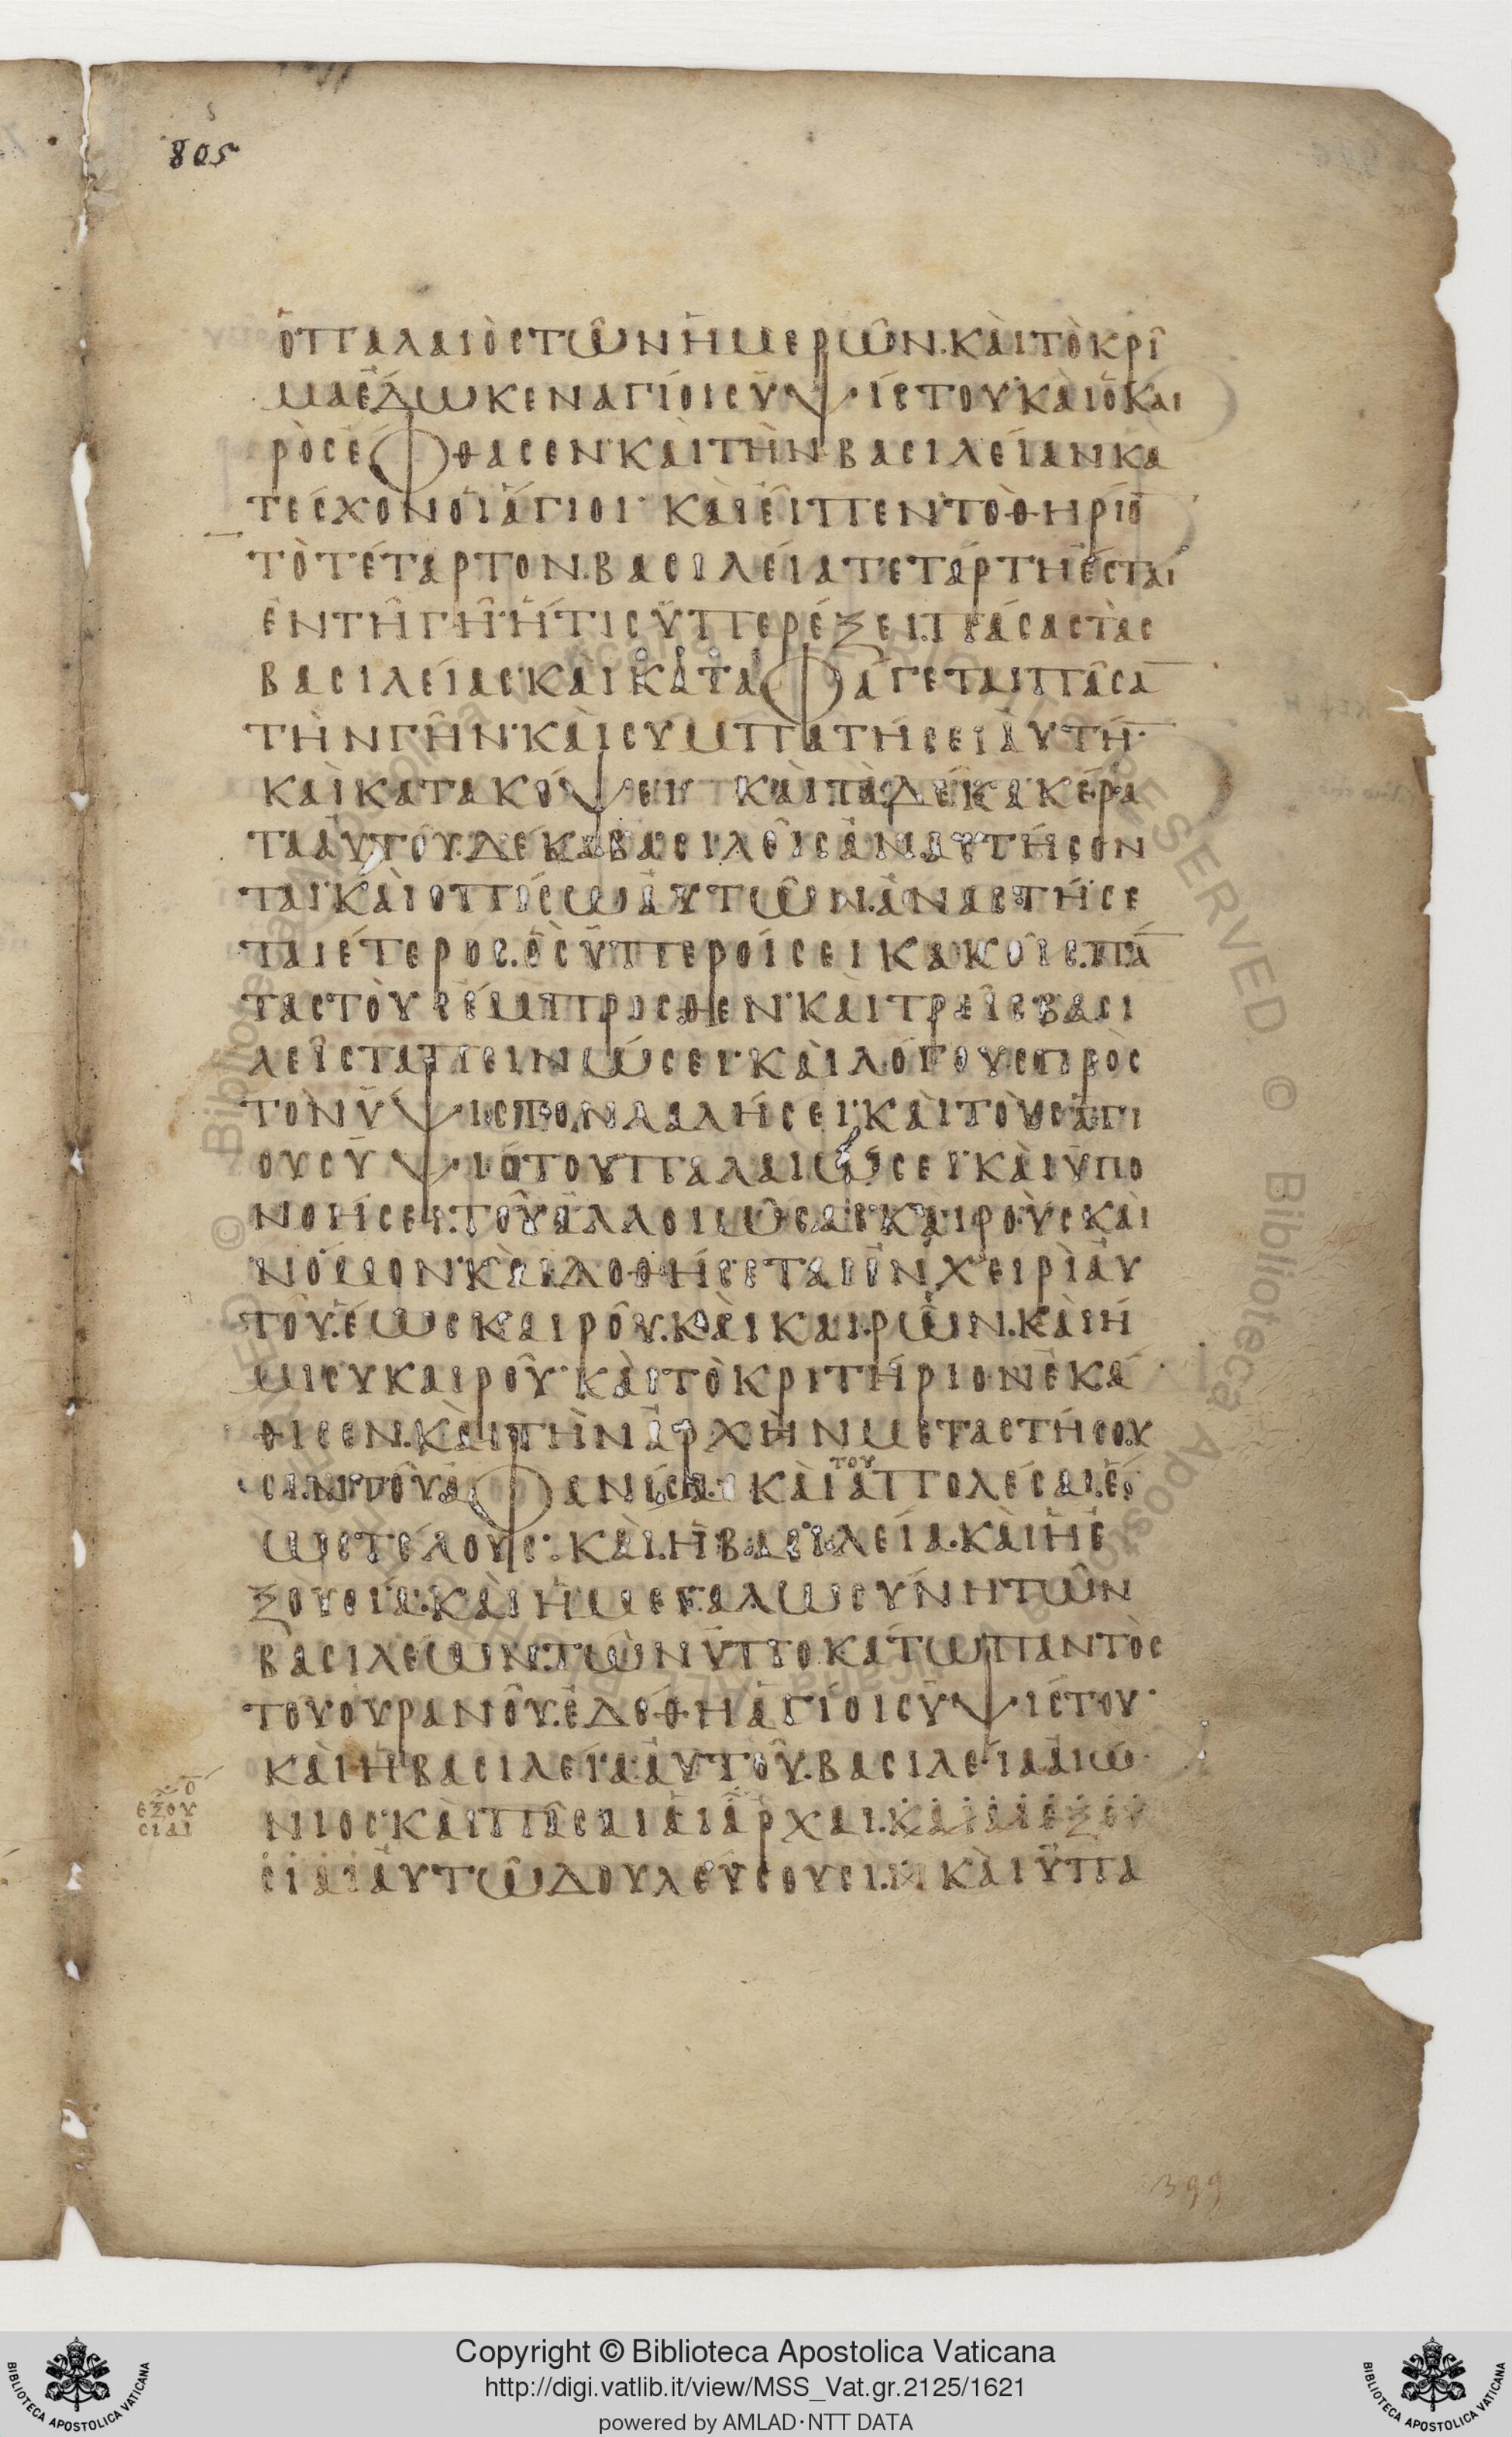 805
ὁ παλαιὸς τῶν ἡμερῶν. καὶ τὸ κρῖ
μα ἔδωκεν ἁγίοις ὑψίστου καὶ ὁ και
ρὸς ἔφθασεν καὶ τὴν βασιλείαν κα
τέσχον οἱ ἅγιοι· καὶ εἶπεν τὸ θηρίο̅
τὸ τέταρτον. βασιλεία τετάρτη ἔσται
ἐν τῇ γῇ ἥτις ὑπερέξει πάσας τὰς
βασιλείας· καὶ καταφάγεται πᾶσα̅
τὴν γῆν· καὶ συμπατήσει αὐτή̅·
καὶ κατακόψει· καὶ τὰ δέκα κέρα
τα αὐτοῦ. δέκα βασιλεῖς ἀναστήσον
ται· καὶ ὀπίσω αὐτῶν. ἀναστήσε
ται ἕτερος. ὃς ὑπεροίσει κακοῖς. πά̅
τας τοὺς ἔμπροσθεν· καὶ τρεῖς βασι
λεῖς ταπεινώσει· καὶ λόγους πρὸς
τὸν ὕψιστον λαλήσει· καὶ τοὺς ἁγί
ους ὑψίστου παλαιώσει· καὶ ὑπο
νοήσει. τοῦ ἀλλοιῶσαι καιροὺς καὶ
νόμον· καὶ δοθήσεται ἐν χειρὶ αὐ
τοῦ. ἕως καιροῦ. καὶ καιρῶν. καὶ ἥ
μισυ καιροῦ· καὶ τὸ κριτήριον ἐκά
θισεν. καὶ τὴν ἀρχὴν μεταστήσου
σιν τοῦ ἀφανίσαι καὶ τοῦ ἀπολέσαι ἕ
ως τέλους· καὶ ἡ βασιλεία. καὶ ἡ ἐ
ξουσία. καὶ ἡ μεγαλωσύνη τῶν
βασιλέων. τῶν ὑποκάτω παντὸς
τοῦ οὐρανοῦ. ἐδόθη ἁγίοις ὑψίστου·
καὶ ἡ βασιλεία αὐτοῦ. βασιλεία αἰώ
εξου
σιαι
νιος· καὶ πᾶσαι αἱ ἀρχαὶ. καὶ αἱ ἐξου
σίαι αὐτῷ δουλεύσουσι. καὶ ὑπα
399
Copyright © Biblioteca Apostolica Vaticana
http://digi.vatlib.it/view/MSS_Vat.gr.2125/1621
powered by AMLAD·NTT DATA
BIBLIOTECA APOSTOLICA VATICANA
BIBLIOTECA APOSTOLICA VATICANA